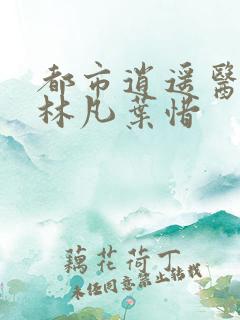 都市逍遥醫
林凡葉惜
藕花荷丁
未经同意禁止转载